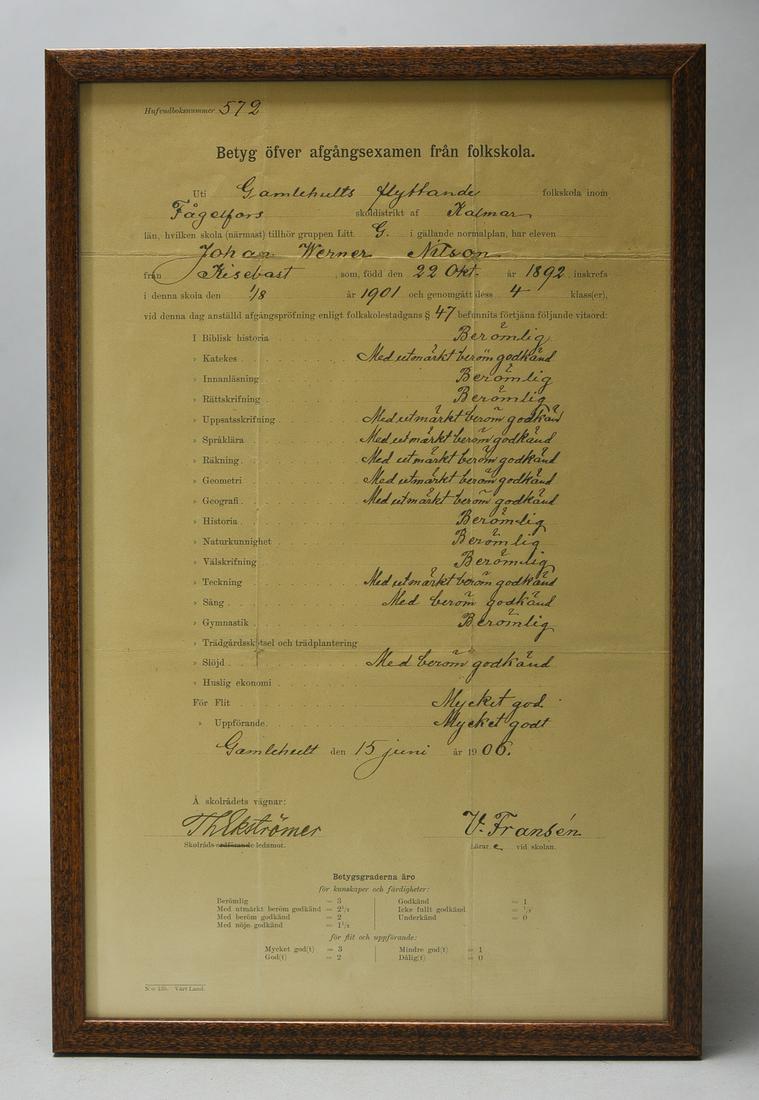 Hufvudboksnummer 572
Betyg öfver afgångsexamen från folkskola.
Uti Gamlehults flyttande folkskola inom
Fågelfors skoldistrikt af Kalmar
län, hvilken skola (närmast) tillhör gruppen Litt. G. i gällande normalplan, har eleven
Johan Werner Nilson
från Kisebast, som, född den 22 Okt. år 1892 inskrefs
i denna skola den 1/8 år 1901 och genomgått dess 4 klass(er),
vid denna dag anställd afgångspröfning enligt folkskolestadgans § 47 befunnits förtjäna följande vitsord:
I Biblisk historia Berömlig
» Katekes Med utmärkt beröm godkänd
» Innanläsning Berömlig
» Rättskrifning Berömlig
» Uppsatsskrifning Med utmärkt beröm godkänd
» Språklära Med utmärkt beröm godkänd
» Räkning Med utmärkt beröm godkänd
» Geometri Med utmärkt beröm godkänd
» Geografi Med utmärkt beröm godkänd
» Historia Berömlig
» Naturkunnighet Berömlig
» Välskrifning Berömlig
» Teckning Med utmärkt beröm godkänd
» Sång Med beröm godkänd
» Gymnastik Berömlig
» Trädgårdsskötsel och trädplantering
» Slöjd Med beröm godkänd
» Huslig ekonomi
För Flit Mycket god
» Uppförande Mycket godt
Gamlehult den 15 juni år 1906.
Å skolrådets vägnar:
Th Ekströmer V. Fransén
Skolråds ordförande ledamot. Lärare vid skolan.
Betygsgraderna äro
för kunskaper och färdigheter:
Berömlig = 3 Godkänd = 1
Med utmärkt beröm godkänd = 2½ Icke fullt godkänd = ½
Med beröm godkänd = 2 Underkänd = 0
Med nöje godkänd = 1½
för flit och uppförande:
Mycket god(t) = 3 Mindre god(t) = 1
God(t) = 2 Dålig(t) = 0
Vårt Land.